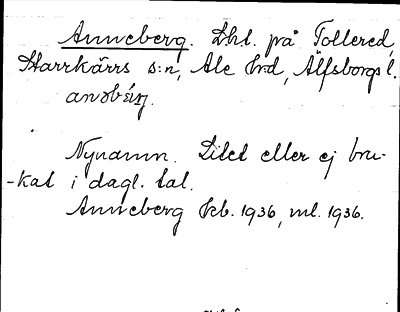 Anneberg. Lht. på Tollered,
Starrkärrs s:n, Ale hd, Älfsborgs l.
Nynamn. Litet eller ej bru-
-kat i dagl. tal.
Anneberg kb. 1936, ml. 1936.